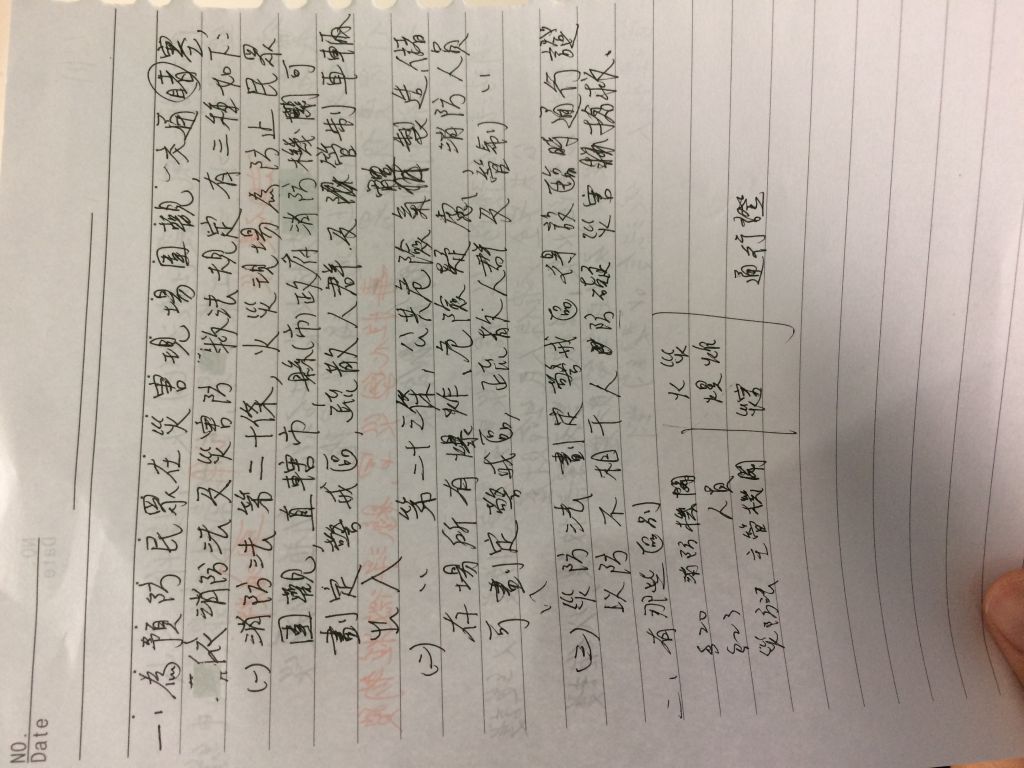 NO.
Date
一、為預防民眾在災害現場圍觀、交通堵塞,
依消防法及災害防救法規定有三種如下:
(一) 消防法第二十條,火災現場為防止民眾
圍觀,直轄市、縣市政府消防機關可
劃定警戒區、疏散人群及管制車輛
出入
(二) 〃 第二十三條,公共危險氣體製造儲
存場所有爆炸、危險疑慮,消防人員
可劃定警戒區,疏散人群及管制〃
〃
(三) 災防法劃定警戒區得設臨時通行證
以防不相干人妨礙災害搶救、
二、有那些區別
§20 消防機關 火災
§23 人員 爆炸
災防法 主管機關 災害 通行證